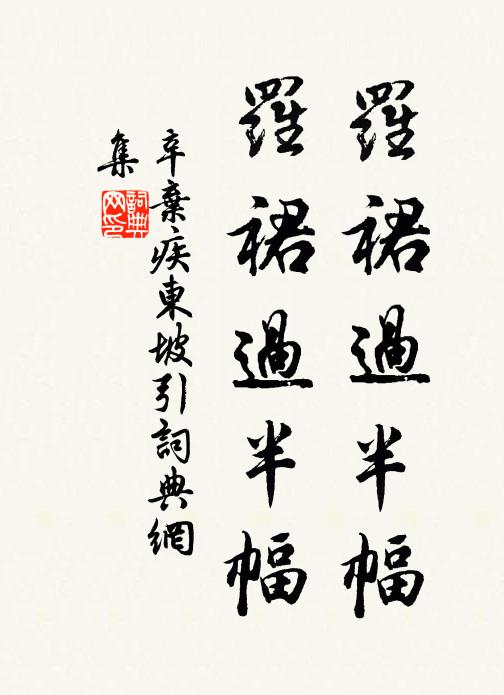 羅裙過半幅
羅裙過半幅
辛棄疾東坡引詞典網
集
詞典網印